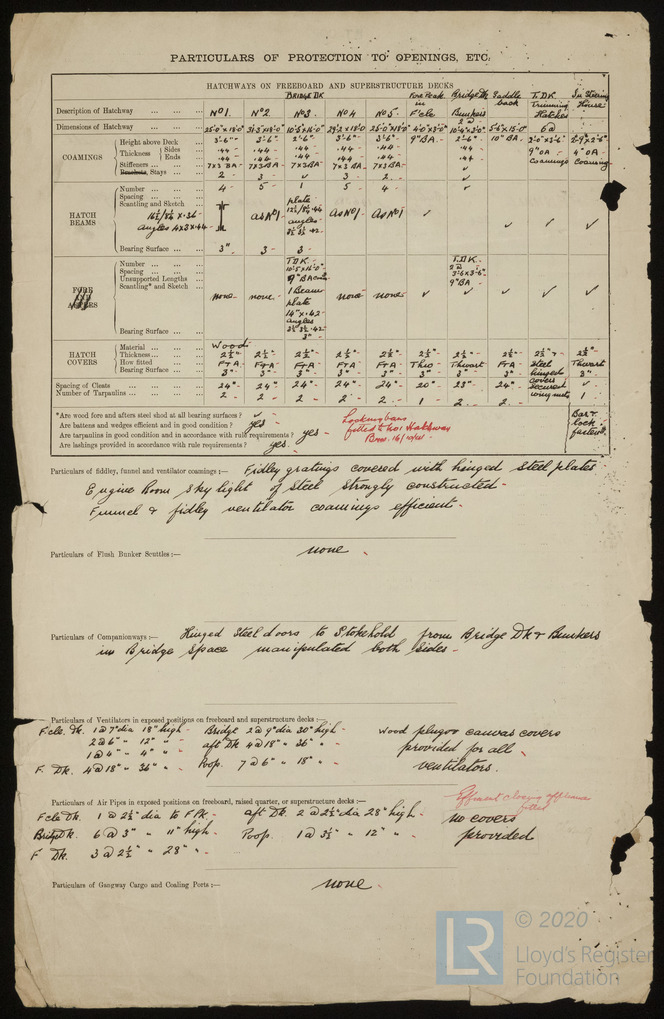 PARTICULARS OF PROTECTION TO OPENINGS, ETC.
HATCHWAYS ON FREEBOARD AND SUPERSTRUCTURE DECKS
BRIDGE DK Fore Peak in F'cle Bridge Dk Bunkers Saddle back T. DK Trimming Hatches In Steering House
Description of Hatchway ... ... ... No 1. No 2. No 3. No 4 No 5.
Dimensions of Hatchway ... ... ... 25'-0" x 18'-0" 31'-3" x 18'-0" 10'-5" x 16'-0" 29'-2" x 18'-0" 25'-0" x 18'-0" 4'-0" x 3'-0" 2 @ 10'-4" x 3'-0" 5'-6" x 15'-0" 6 @
COAMINGS
Height above Deck ... ... 3'-6" 3'-6" 2'-6" 3'-6" 3'-6" 9" BA 2'-6" 10" BA 2'-0" x 3'-6" 2'-9" x 2'-6"
Thickness Sides ... .44 .44 .44 .44 .44 .44 9" OA 4" OA
Ends ... .44 .44 .44 .44 .44 .44 Coamings Coaming
Stiffeners ... ... ... 7 x 3 BA 7 x 3 BA 7 x 3 BA 7 x 3 BA 7 x 3 BA
Brackets, Stays ... ... 2 3 ✓ 3 2 ✓
HATCH BEAMS
Number ... ... ... 4 5 1 5 4 ✓
Spacing ... ... ...
Scantling and Sketch ...
16½/8½ x .36
angles 4 x 3 x .44
as No 1 plate 12½/8½ .44 angles 3½ 3½ .42 As No 1 As No 1 ✓ ✓ ✓ ✓
Bearing Surface ... ... 3" 3 3
FORE AND AFTERS
Number ... ... ... T. DK. T. DK.
Spacing ... ... ... 10'-5" x 16'-0" 2 @ 3'-6" x 3'-6"
Unsupported Lengths ... 9" BA 9" BA
Scantling* and Sketch ... none none 1 Beam plate 14" x .42 angles 3½ 3½ .42 none none ✓ ✓ ✓ ✓ ✓
Bearing Surface ... ... 3"
HATCH COVERS
Material ... ... ... Wood
Thickness ... ... ... 2½" 2½" 2½" 2½" 2½" 2½" 2½" 2½" 2½" 2½"
How fitted ... ... F & A F & A F & A F & A F & A Thwart F & A Steel hinged covers secured Thwart
Bearing Surface ... ... 3" 3" 3" 3" 3" 3" 3" 3" 3"
Spacing of Cleats ... ... ... 24" 24" 24" 24" 24" 20" 23" 24" ✓
Number of Tarpaulins ... ... ... 2 2 2 2 2 1 2 2 1
*Are wood fore and afters steel shod at all bearing surfaces? ✓
Are battens and wedges efficient and in good condition? yes
Are tarpaulins in good condition and in accordance with rule requirements? yes
Are lashings provided in accordance with rule requirements? yes.
Locking bars
fitted to No 1 Hatchway
Bar & lock fastened.
Particulars of fiddley, funnel and ventilator coamings :— Fidley gratings covered with hinged steel plates
Engine Room Skylight of Steel strongly constructed
Funnel & fidley ventilator coamings efficient.
Particulars of Flush Bunker Scuttles:— none
Particulars of Companionways :— Hinged steel doors to Stokehold from Bridge Dk & Bunkers
in Bridge Space manipulated both sides
Particulars of Ventilators in exposed positions on freeboard and superstructure decks :—
F'cle. Dk. 1 @ 7" dia 18" high Bridge 2 @ 9" dia 30" high wood plugs & canvas covers
2 @ 6" " 12" " aft Dk 4 @ 18" " 36" " provided for all
1 @ 4" " 4" " Poop. 7 @ 6" " 18" " ventilators.
F. Dk. 4 @ 18" " 36" "
Particulars of Air Pipes in exposed positions on freeboard, raised quarter, or superstructure decks :— Efficient closing appliances fitted
F'cle Dk. 1 @ 2½" dia to F Pk. aft Dk. 2 @ 2½" dia 28" high no covers
Bridge Dk. 6 @ 3" " 11" high Poop. 1 @ 3½" " 12" " provided
F Dk. 3 @ 2½" " 28" "
Particulars of Gangway Cargo and Coaling Ports :— none.
LR © 2020
Lloyd's Register
Foundation